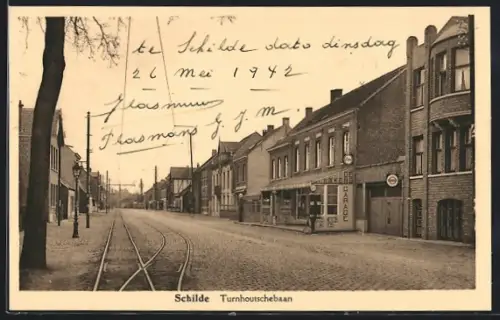 te Schilde dato dinsdag
26 Mei 1942
Flasmans G. J. M
GARAGE
Schilde Turnhoutschebaan